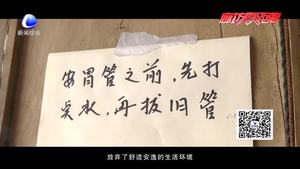 新闻综合
安胃管之前,先打
点水,再拔旧管
放弃了舒适安逸的生活环境